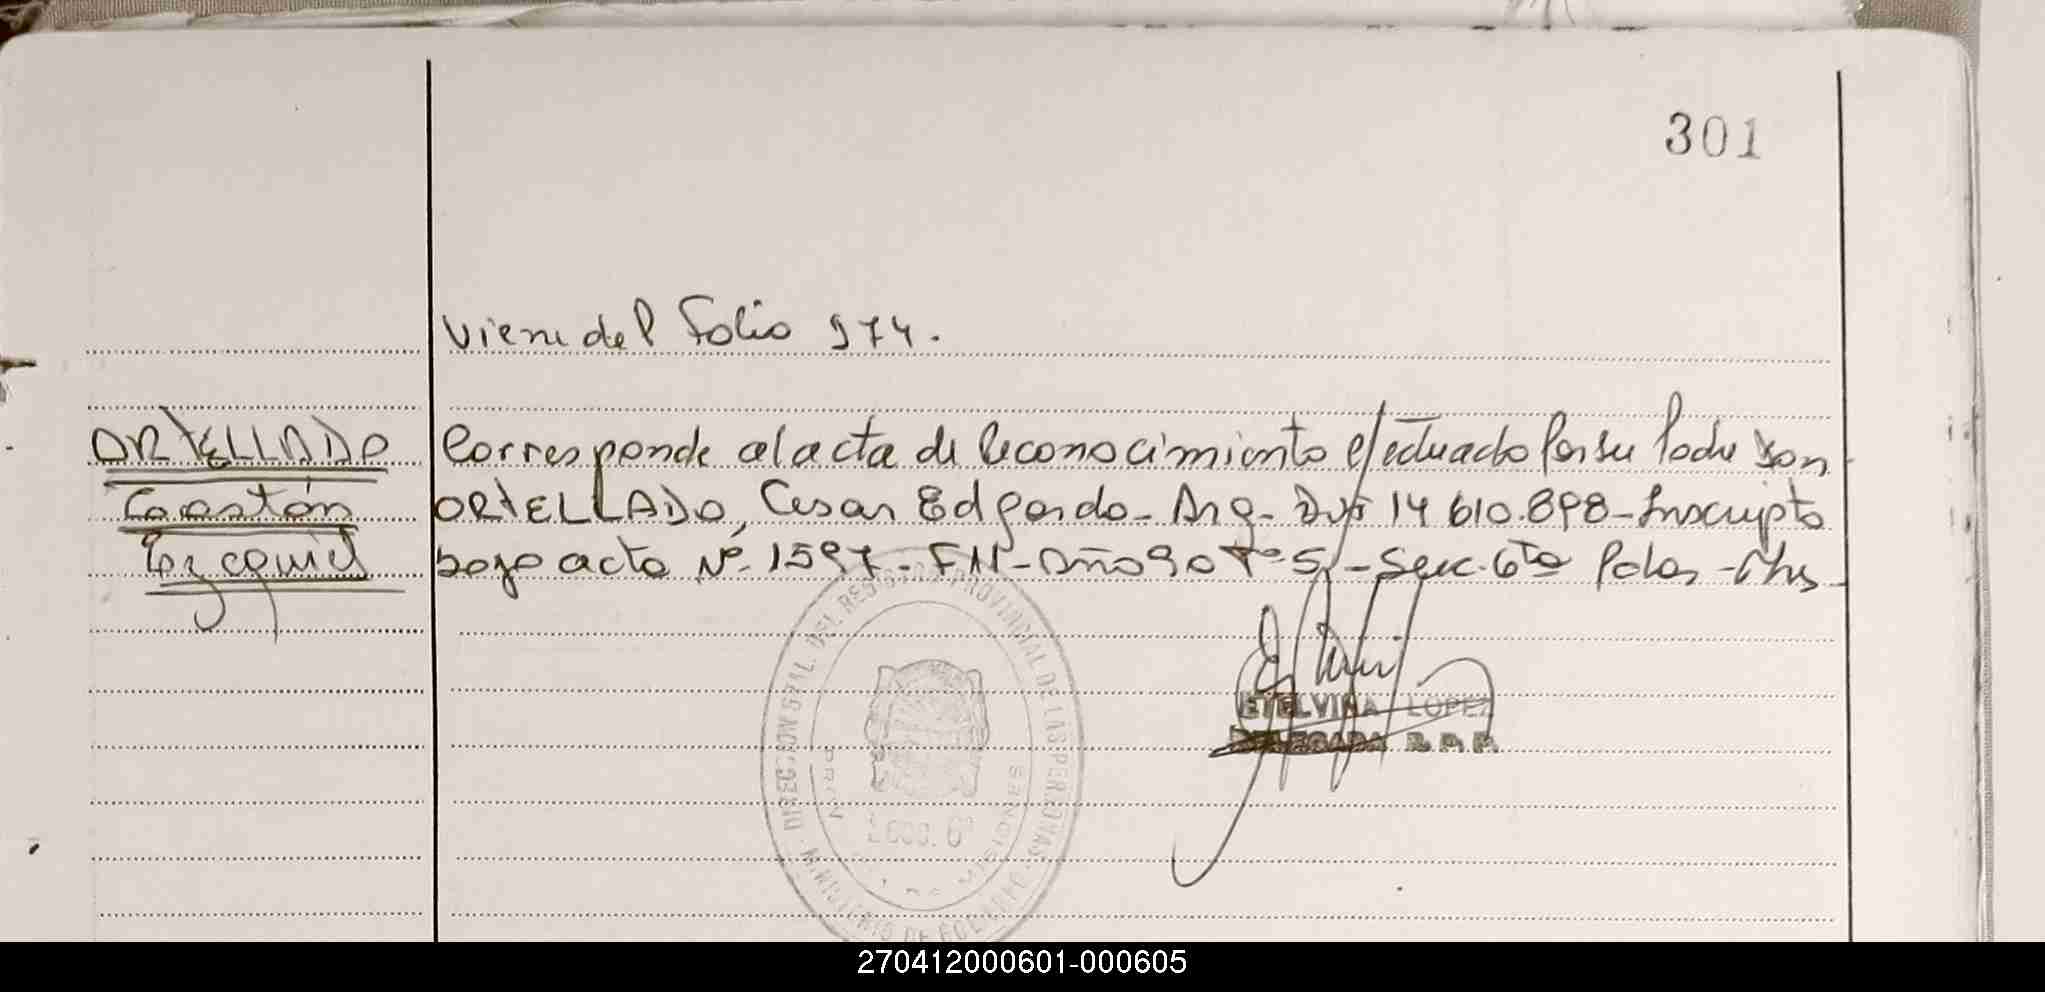 301
Viene del Folio 974.
ORTELLADO Corresponde al acta de Reconocimiento efectuado Por su Padre Don
Gastón ORTELLADO, Cesar Edgardo - Arg - DNI 14 610.898 - Inscripto
Ezequiel bajo acta Nº 1597 - FN - Año 90 Tº 5 - Secc. 6ta Pdas - Mns
ETELVINA LOPEZ
DELEGADA R.P.P.
DIRECCION GRAL. DEL REGISTRO PROVINCIAL DE LAS PERSONAS
MINISTERIO DE GOBIERNO
SECC. 6ª
MISIONES
270412000601-000605